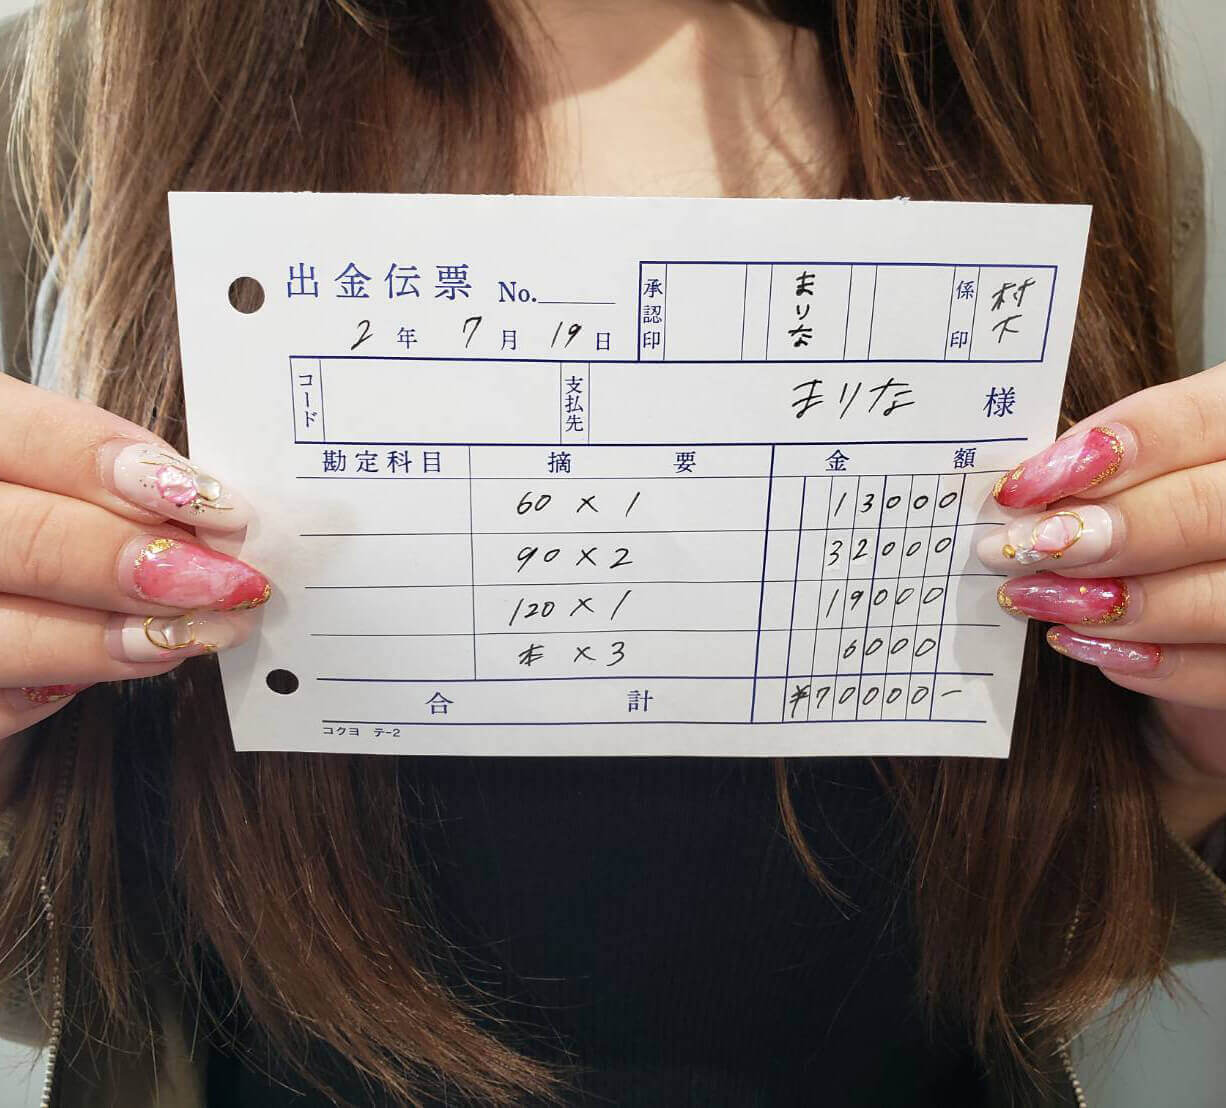 出金伝票 No.
2年 7月 19日
承認印 まりな 係印 村下
コード 支払先 まりな 様
勘定科目 摘要 金額
60 × 1 13000
90 × 2 32000
120 × 1 19000
本 × 3 6000
合計 ¥70000-
コクヨ テ-2